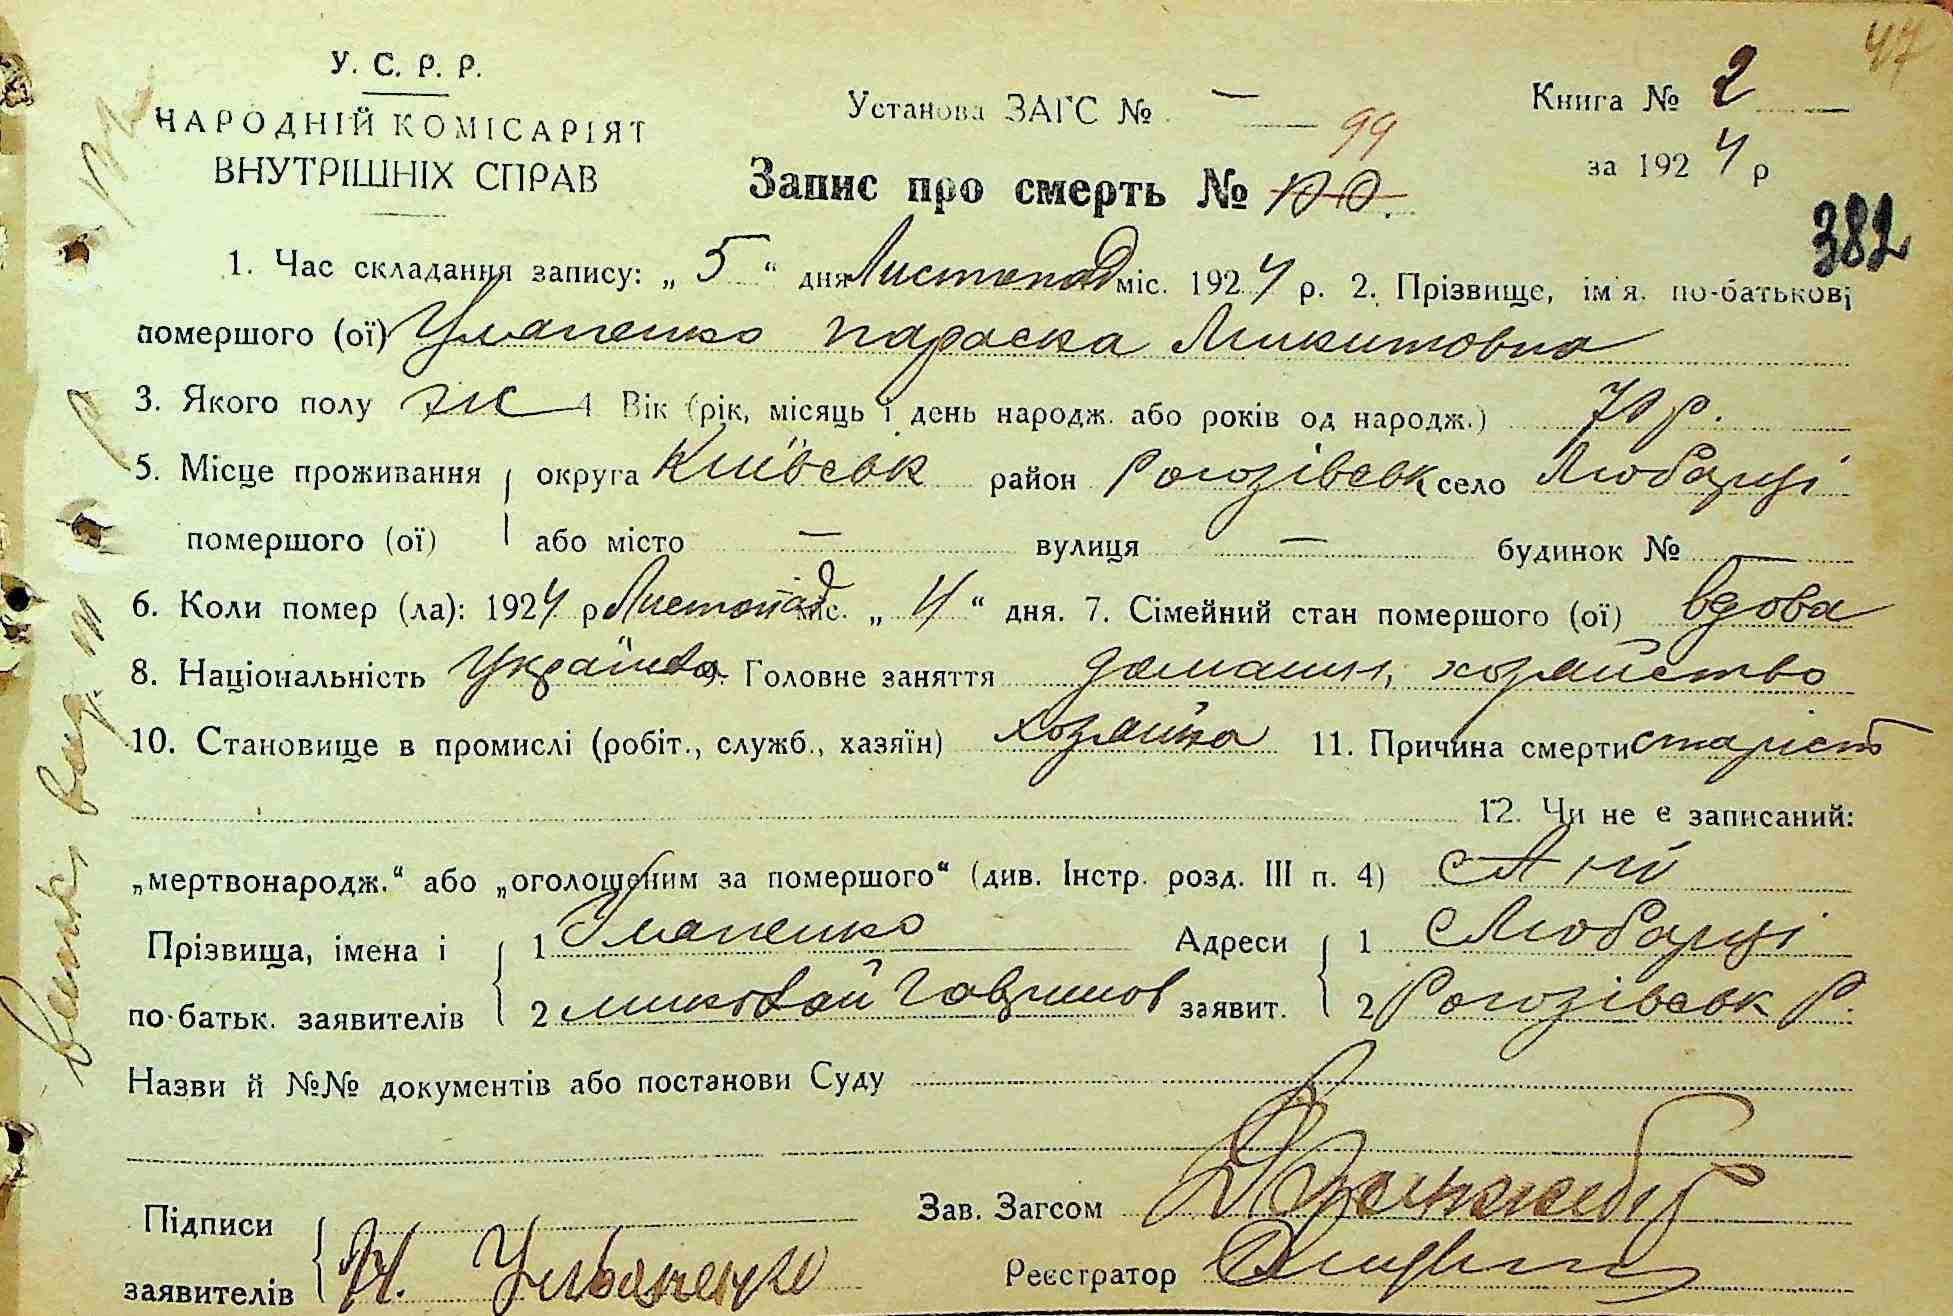 47
У. С. Р. Р.
НАРОДНІЙ КОМІСАРІЯТ
ВНУТРІШНІХ СПРАВ
Установа ЗАГС № —
Книга № 2
за 1924 р
99
Запис про смерть № 100
382
1. Час складання запису: „5“ дня Листопад міс. 1924 р. 2. Прізвище, ім'я, по-батькові
помершого (ої) Уляненко Параска Микитовна
3. Якого полу ж 4 Вік (рік, місяць і день народж. або років од народж.) 70 р.
5. Місце проживання округа Київськ район Рогозівськ село Любарці
помершого (ої) або місто — вулиця — будинок № —
6. Коли помер (ла): 1924 р Листопад міс. „4“ дня. 7. Сімейний стан помершого (ої) вдова
8. Національність Українка 9. Головне заняття домашн. хозяйство
10. Становище в промислі (робіт., служб., хазяїн) хозяйка 11. Причина смерти старість
12. Чи не є записаний:
„мертвонародж.“ або „оголошеним за помершого“ (див. Інстр. розд. III п. 4)
Прізвища, імена і 1 Уляненко Адреси 1 Любарці
по-батьк. заявителів 2 Миколай Гаврилов заявит. 2 Рогозівськ Р.
Назви й №№ документів або постанови Суду
Підписи
Зав. Загсом
заявителів Н. Ульяненко
Реєстратор